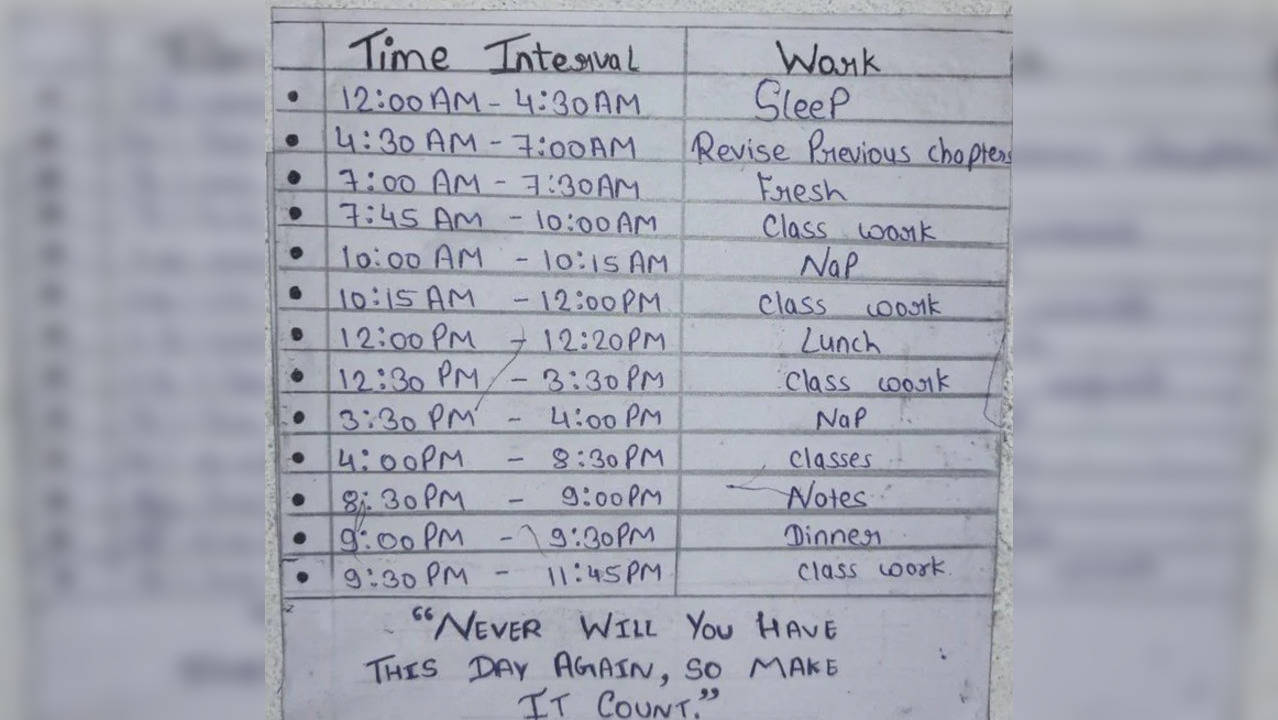 Time Interval Work
• 12:00 AM - 4:30 AM Sleep
• 4:30 AM - 7:00 AM Revise Previous chapters
• 7:00 AM - 7:30 AM Fresh
• 7:45 AM - 10:00 AM Class work
• 10:00 AM - 10:15 AM Nap
• 10:15 AM - 12:00 PM Class work
• 12:00 PM - 12:20 PM Lunch
• 12:30 PM - 3:30 PM Class work
• 3:30 PM - 4:00 PM Nap
• 4:00 PM - 8:30 PM Classes
• 8:30 PM - 9:00 PM Notes
• 9:00 PM - 9:30 PM Dinner
• 9:30 PM - 11:45 PM Class work
“NEVER WILL YOU HAVE
THIS DAY AGAIN, SO MAKE
IT COUNT.”